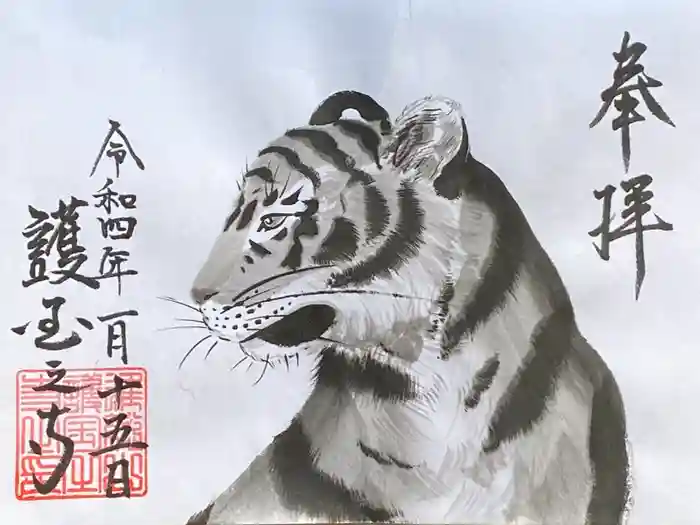 奉拝
令和四年一月十五日
護国之寺